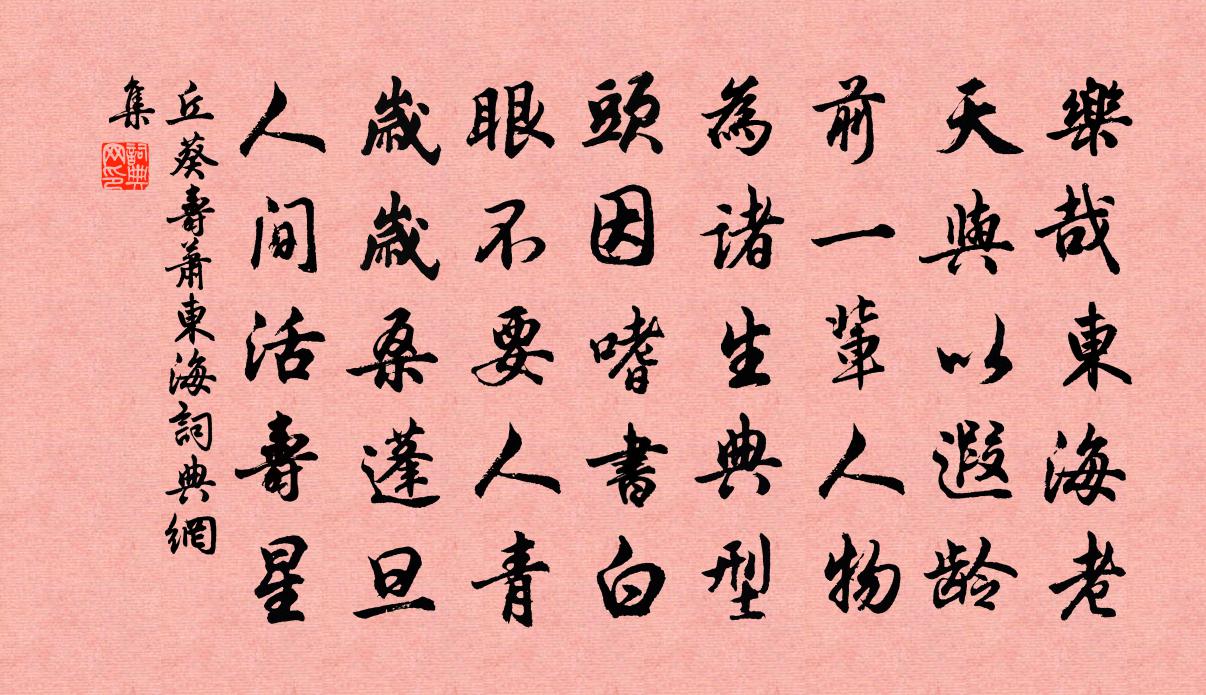 樂哉東海老
天與以遐齡
前一輩人物
為諸生典型
頭因嗜書白
眼不要人青
歲歲桑蓬旦
人間活壽星
丘葵壽蕭東海詞典網
集
詞典
网印